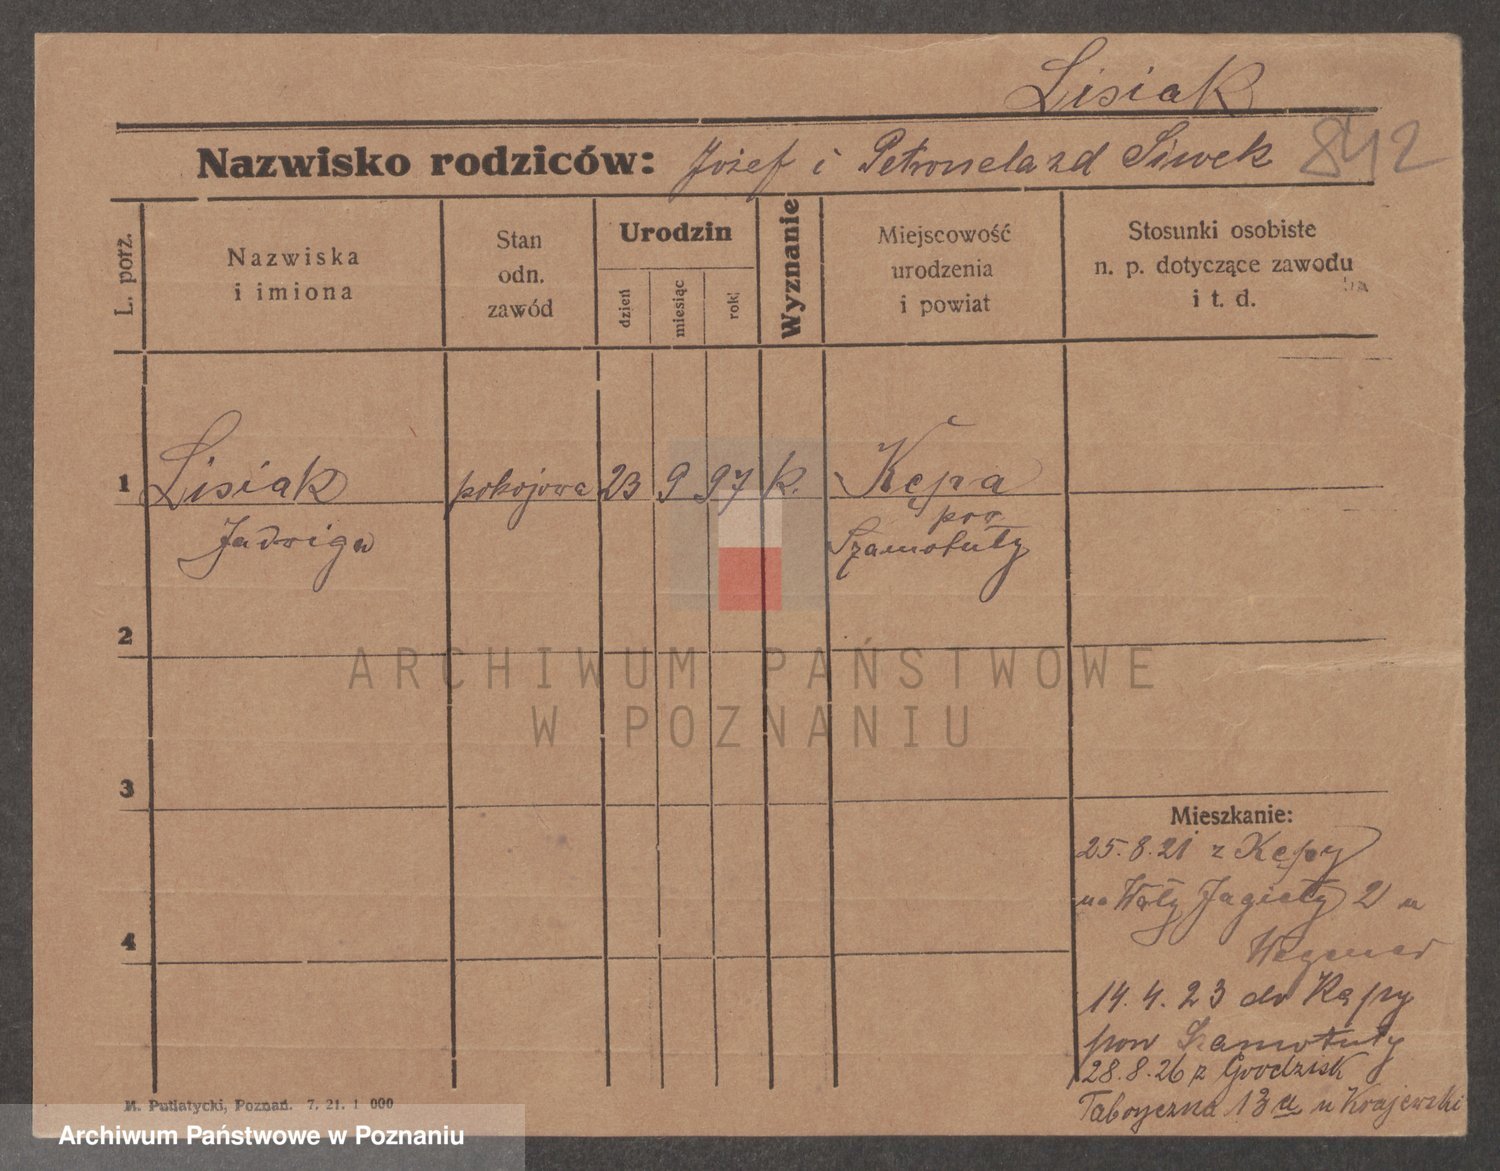 Lisiak
Nazwisko rodziców: Józef i Petronela zd Siwek 842
L. porz.
Nazwiska
i imiona
Stan
odn.
zawód
Urodzin
dzień
miesiąc
rok
Wyznanie
Miejscowość
urodzenia
i powiat
Stosunki osobiste
n. p. dotyczące zawodu
i t. d.
1 Lisiak pokojowa 23 9 97 k. Kępa
pow
Jadwiga Szamotuły
2
ARCHIWUM PAŃSTWOWE
W POZNANIU
3
Mieszkanie:
25.8.21 z Kępy
na Wały Jagiełły 21 u
Wegener
4
14.4.23 do Kępy
pow Szamotuły
28.8.26 z Grodzisk
Taboryczna 13a u Krajewski
M. Putiatycki, Poznań. 7. 21. 1 000
Archiwum Państwowe w Poznaniu